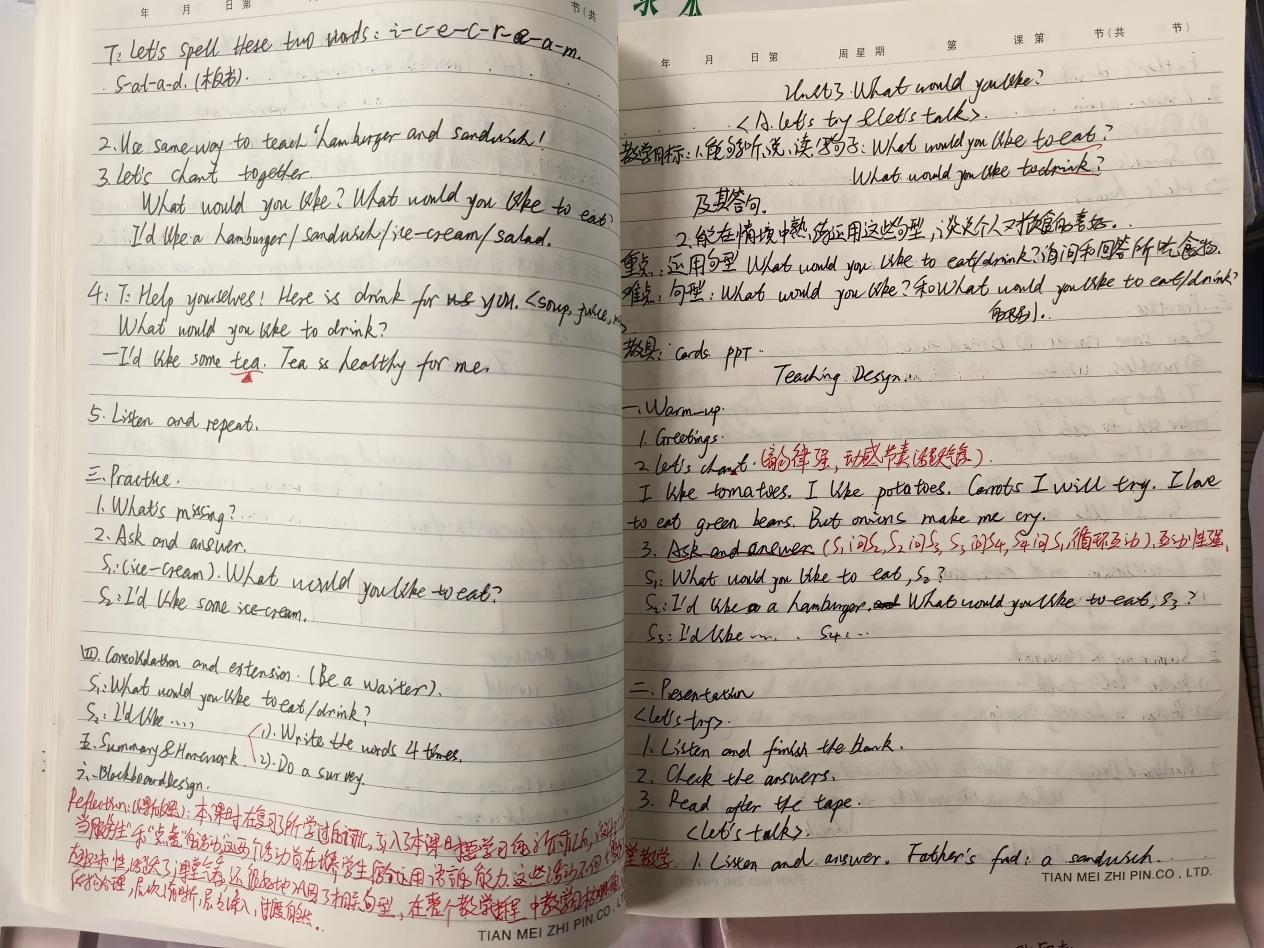 年 月 日 第 节(共
T: Let's spell these two words: i-c-e-c-r-e-a-m.
s-al-a-d. (板书).
2. Use same way to teach 'hamburger and sandwich!
3. Let's chant together.
What would you like? What would you like to eat?
I'd like a hamburger/sandwich/ice-cream/salad.
4: T: Help yourselves! Here is drink for you. <soup, juice,
What would you like to drink?
—I'd like some tea. Tea is healthy for me.
5. Listen and repeat.
三. Practice.
1. What's missing?
2. Ask and answer.
S1: (ice-cream). What would you like to eat?
S2: I'd like some ice-cream.
四. Consolidation and extension. (Be a waiter).
S1: What would you like to eat/drink?
S2: I'd like ....
五. Summary & Homework. (1). Write the words 4 times.
(2). Do a survey.
六. Blackboard design.
Reflection: 本课时在复习所学过的 引入了本课
当服务生"和"点 "的活动,这两个活动旨在培养学生 运用 能力.这些活动不但
活跃了课堂气氛,还很好地巩固了相关句型,在整个教学 中教学
合理,层次清晰,层层深入,过渡自然。
TIAN MEI ZHI PIN.CO , LTD.
年 月 日 第 周 星 期 第 课 第 节(共 节)
Unit 3 What would you like?
<A. Let's try & Let's talk>.
教学目标: 1. 能够听、说、读、写句子: What would you like to eat?
What would you like to drink?
及其答句.
2. 能在情境中熟练运用这些句型,谈论个人对 食的喜好.
重点: 运用句型 What would you like to eat/drink? 询问和回答所吃食物.
难点: 句型: What would you like? 和 What would you like to eat/drink?
的区别.
教具: cards. PPT.
Teaching Design
一. Warm-up.
1. Greetings.
2. Let's chant. (韵律强,动感节奏
I like tomatoes. I like potatoes. Carrots I will try. I love
to eat green beans. But onions make me cry.
3. Ask and answer. (S1问S2, S2问S3, S3问S4, S4问S1, 循环互动). 互动性强.
S1: What would you like to eat, S2?
S2: I'd like a hamburger. What would you like to eat, S3?
S3: I'd like .... S4: ...
二. Presentation
<Let's try>.
1. Listen and finish the blank.
2. Check the answers.
3. Read after the tape.
<Let's talk>.
1. Listen and answer. Father's food: a sandwich.
TIAN MEI ZHI PIN.CO , LTD.